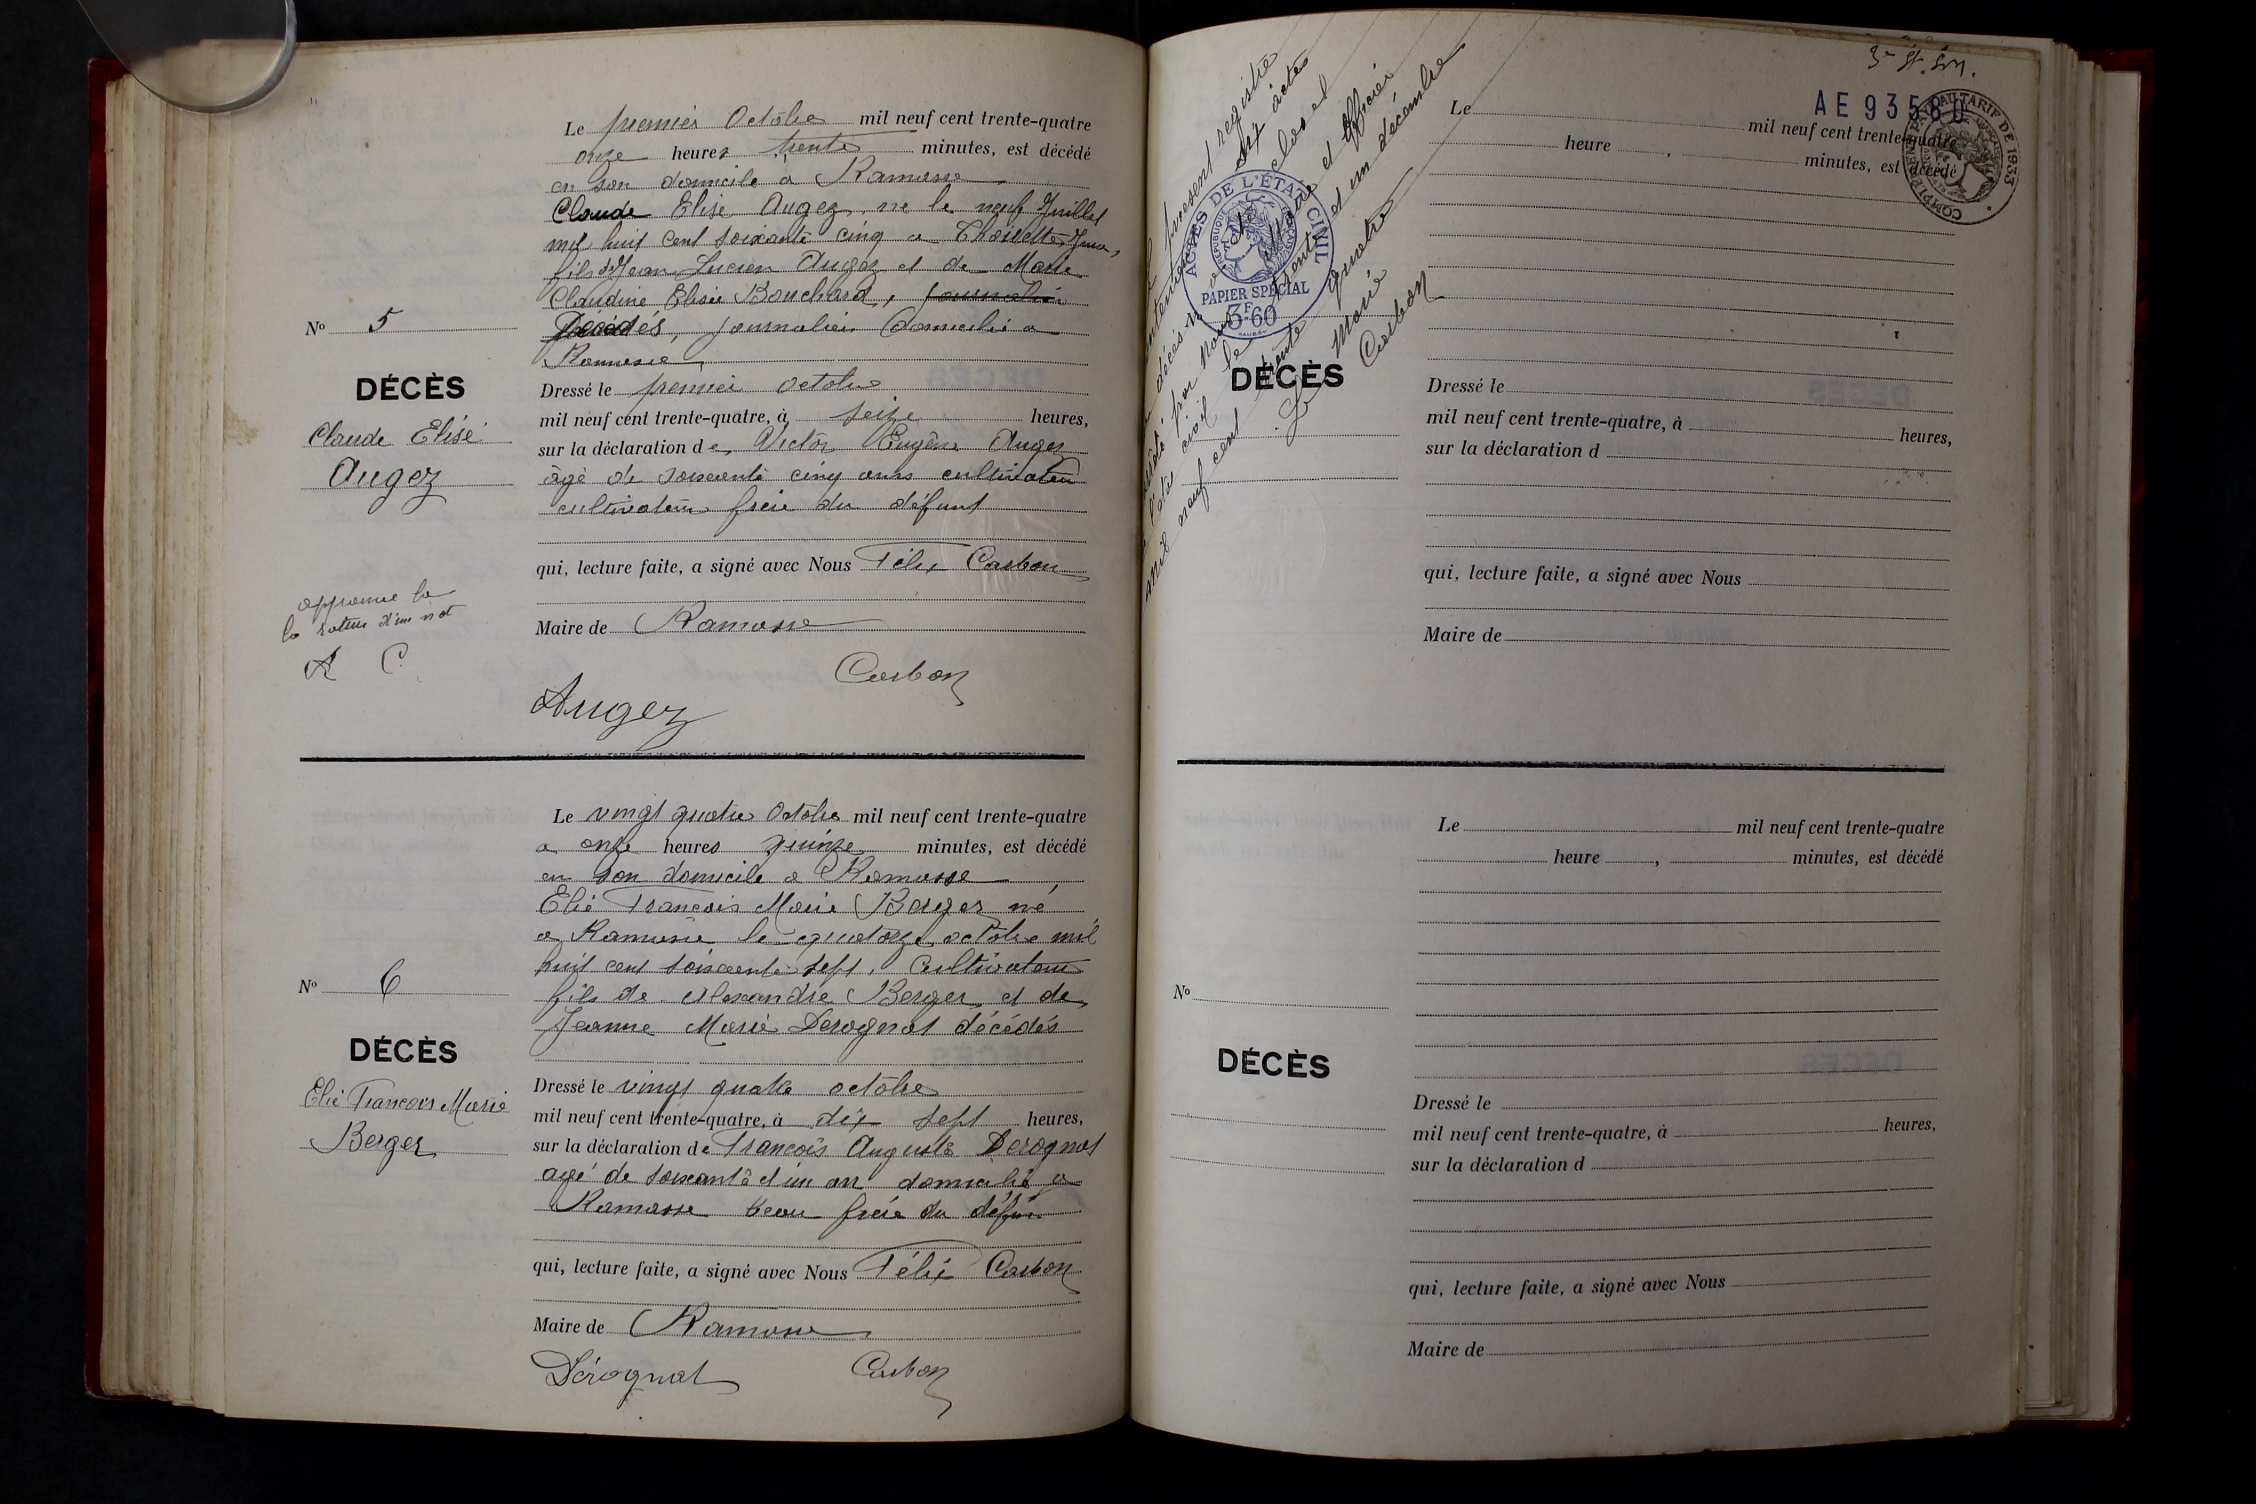 Le premier Octobre mil neuf cent trente-quatre
onze heures trente minutes, est décédé
en son domicile a Ramasse
Claude Elise Augez, ne le neuf Juillet
mil huit cent soixante cinq a Thoirette Jura,
fils de Jean Lucien Augez et de Marie
Claudine Elisée Bouchard, journalier
Décédés, journalier domicilié a
Ramasse
Nº 5
DÉCÈS
Claude Elisé
Augez
Dressé le premier octobre
mil neuf cent trente-quatre, à seize heures,
sur la déclaration de Victor Eugène Augez
âgé de soixante cinq ans cultivateur
cultivateur frère du défunt
qui, lecture faite, a signé avec Nous Félix Carbon
approuvé la
la rature d'un mot
A C
Maire de Ramasse
Carbon
Augez
Le vingt quatre Octobre mil neuf cent trente-quatre
a onze heures quinze minutes, est décédé
en son domicile a Ramasse
Elie François Marie Berger né
a Ramasse le quatorze octobre mil
huit cent soixante sept, Cultivateur
fils de Alexandre Berger et de
Jeanne Marie Derognat décédés
Nº 6
DÉCÈS
Elie François Marie
Berger
Dressé le vingt quatre octobre
mil neuf cent trente-quatre, à dix sept heures,
sur la déclaration de François Auguste Derognat
agé de soixante et un an domicilié a
Ramasse beau frère du défun
qui, lecture faite, a signé avec Nous Félix Carbon
Maire de Ramasse
Dérognat Carbon
présent registre
six actes
décès clos et
par Nous Maire et Officier
de l'état civil le trente et un décembre
mil neuf cent trente quatre
Le Maire
Carbon
ACTES DE L'ÉTAT CIVIL
RÉPUBLIQUE FRANÇAISE
PAPIER SPÉCIAL
3F.60
AE 93580
COMPLÉMENT PAYÉ AU TARIF DE 1933
Le mil neuf cent trente-quatre
heure, minutes, est décédé
DÉCÈS
Dressé le
mil neuf cent trente-quatre, à heures,
sur la déclaration d
qui, lecture faite, a signé avec Nous
Maire de
Le mil neuf cent trente-quatre
heure, minutes, est décédé
Nº
DÉCÈS
Dressé le
mil neuf cent trente-quatre, à heures,
sur la déclaration d
qui, lecture faite, a signé avec Nous
Maire de